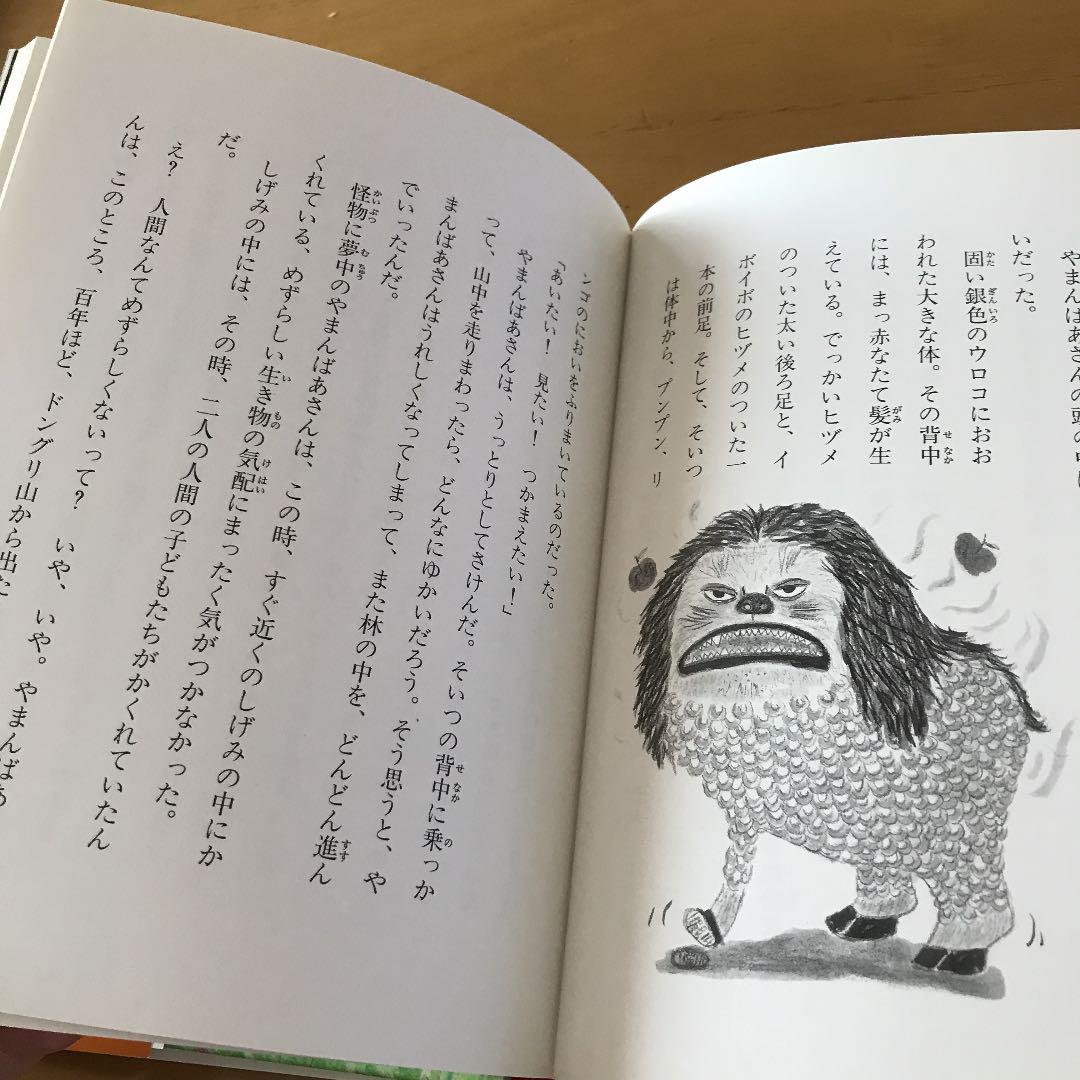 やまんばあさんの頭の中に
いだった。
固い銀色のウロコにおお
われた大きな体。その背中
には、まっ赤なたて髪が生
えている。でっかいヒヅメ
のついた太い後ろ足と、イ
ボイボのヒヅメのついた一
本の前足。そして、そいつ
は体中から、プンプン、リ
ンゴのにおいをふりまいているのだった。
「あいたい！　見たい！　つかまえたい！」
やまんばあさんは、うっとりとしてさけんだ。そいつの背中に乗っか
って、山中を走りまわったら、どんなにゆかいだろう。そう思うと、や
まんばあさんはうれしくなってしまって、また林の中を、どんどん進ん
でいったんだ。
怪物に夢中のやまんばあさんは、この時、すぐ近くのしげみの中にか
くれている、めずらしい生き物の気配にまったく気がつかなかった。
しげみの中には、その時、二人の人間の子どもたちがかくれていたん
だ。
え？　人間なんてめずらしくないって？　いや、いや。やまんばあ
んは、このところ、百年ほど、ドングリ山から出た